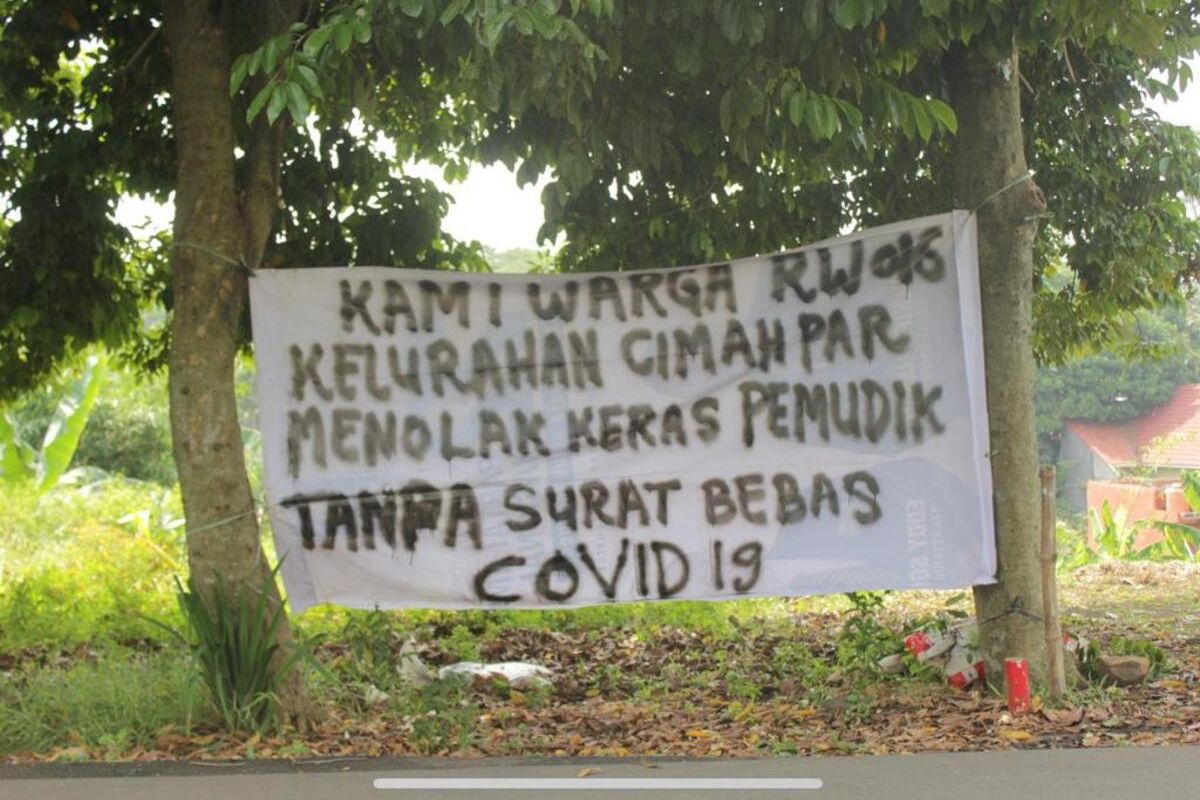 KAMI WARGA RW 016
KELURAHAN CIMAHPAR
MENOLAK KERAS PEMUDIK
TANPA SURAT BEBAS
COVID 19